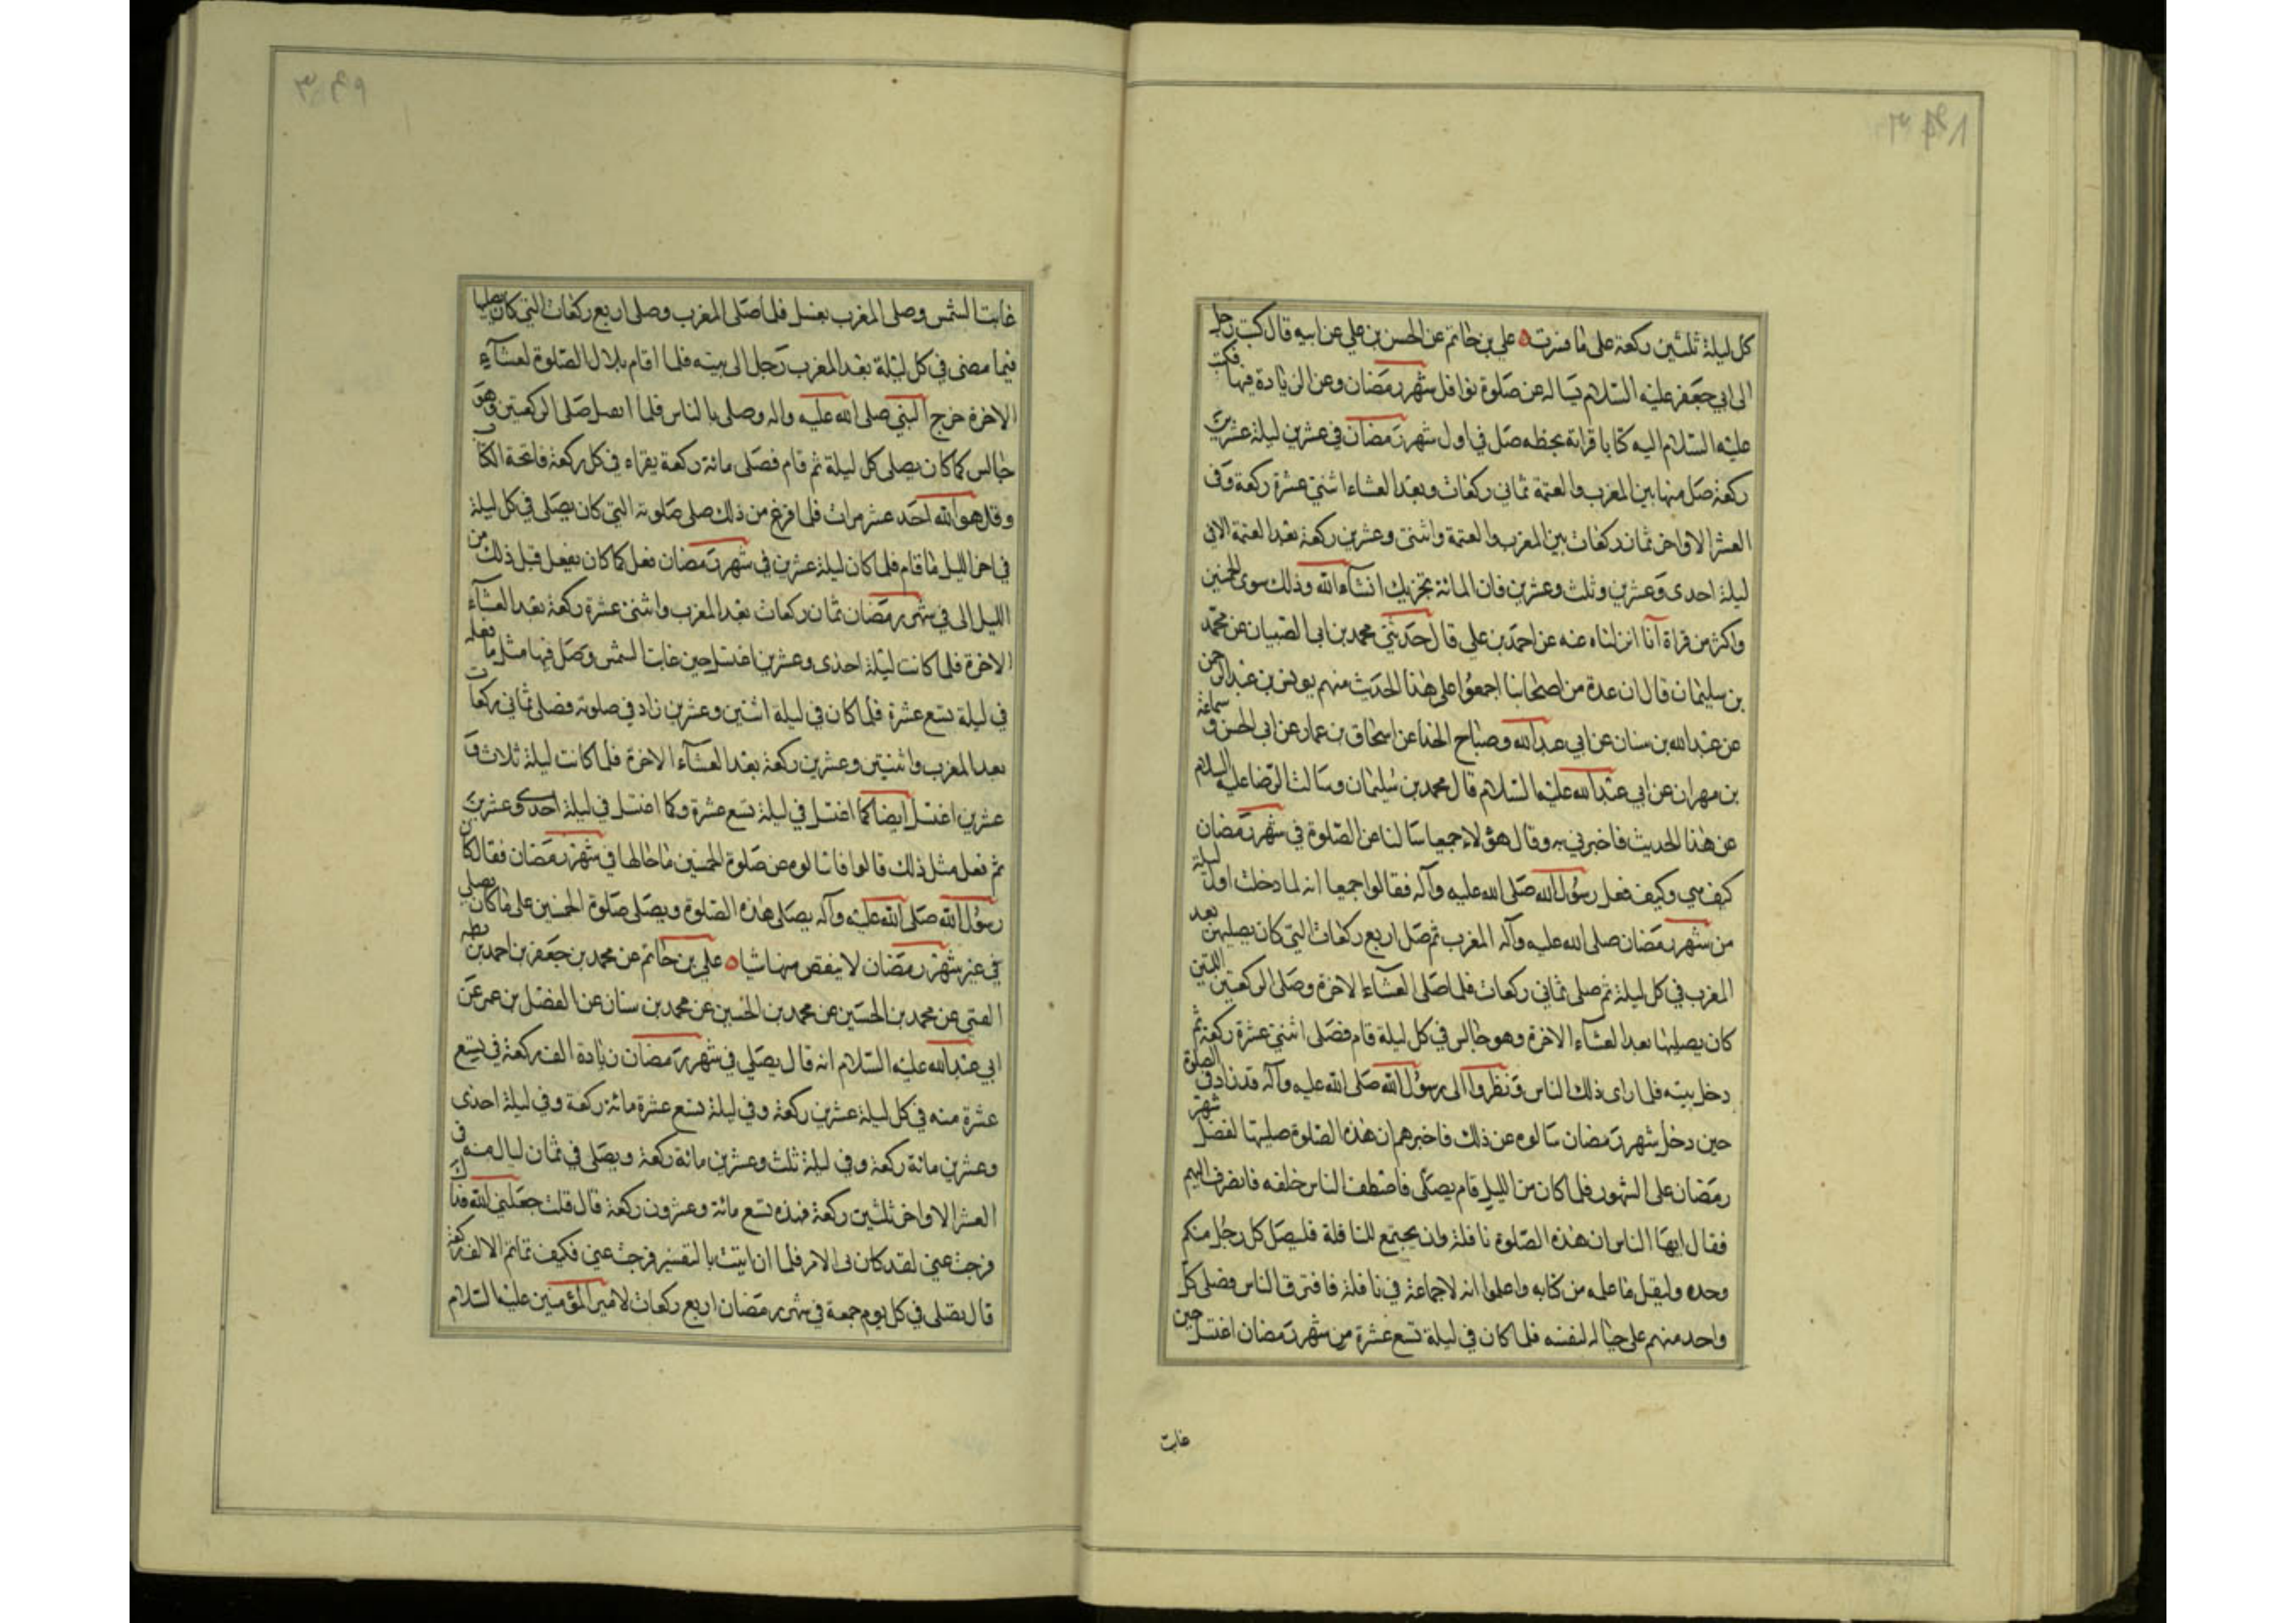 كل ليلة ثلثين ركعة على ما فسرت علي بن حاتم عن الحسن بن علي عن ابيه قال كتب رجل
الى ابي جعفر عليه السلام يساله عن صلوة نوافل شهر رمضان وعن الزيادة فيها فكتب
عليه السلام اليه كتابا قراته بخطه صل في اول شهر رمضان في عشرين ليلة عشرين
ركعة صل منها بين المغرب والعتمة ثماني ركعات وبعد العشاء اثنتي عشرة ركعة وفي
العشر الاواخر ثمان ركعات بين المغرب والعتمة واثنتى وعشرين ركعة بعد العتمة الا في
ليلة احدى وعشرين وثلث وعشرين فان المائة تجزيك انشاء الله وذلك سوى الخمسين
واكثر من قراة انا انزلناه عنه عن احمد بن علي قال حدثني محمد بن ابي الصهبان عن محمد
بن سليمان قال ان عدة من اصحابنا اجمعوا على هذا الحديث منهم يونس بن عبد الرحمن
عن عبد الله بن سنان عن ابي عبد الله وصباح الحذا عن اسحاق بن عمار عن ابي الحسن و سماعة
بن مهران عن ابي عبد الله عليه السلام قال محمد بن سليمان وسالت الرضا عليه السلام
عن هذا الحديث فاخبرني به وقال هؤلاء جميعا سالنا عن الصلوة في شهر رمضان
كيف هي وكيف فعل رسول الله صلى الله عليه وآله فقالوا جميعا انه لما دخلت اول ليلة
من شهر رمضان صلى الله عليه وآله المغرب ثم صلى اربع ركعات التي كان يصليهن بعد
المغرب في كل ليلة ثم صلى ثماني ركعات فلما صلى العشاء الاخرة وصلى الركعتين اللتين
كان يصليها بعد العشاء الاخرة وهو جالس في كل ليلة قام فصلى اثنتي عشرة ركعة ثم
دخل بيته فلما راى ذلك الناس ونظروا الى رسول الله صلى الله عليه وآله قد زاد في الصلوة
حين دخل شهر رمضان سالوه عن ذلك فاخبرهم ان هذه الصلوة صليتها لفضل شهر
رمضان على الشهور فلما كان من الليل قام يصلى فاصطف الناس خلفه فانصرف اليهم
فقال ايها الناس ان هذه الصلوة نافلة ولن يجتمع للنافلة فليصل كل رجل منكم
وحده وليقل ما علمه من كتابه واعلموا انه لا جماعة في نافلة فافترق الناس فصلى كل
واحد منهم على حياله لنفسه فلما كان في ليلة تسع عشرة من شهر رمضان اغتسل حين
غابت
غابت الشمس وصلى المغرب بغسل فلما صلى المغرب وصلى اربع ركعات التي كان يصليها
فيما مضى في كل ليلة بعد المغرب دخل الى بيته فلما اقام بلال الصلوة لعشاء
الاخرة خرج النبي صلى الله عليه واله وصلى بالناس فلما انفتل صلى الركعتين وهو
جالس كما كان يصلى كل ليلة ثم قام فصلى مائة ركعة يقراء في كل ركعة فاتحة الكتاب
وقل هو الله احد عشر مرات فلما فرغ من ذلك صلى صلوته التي كان يصلى في كل ليلة
في اخر الليل ما قام فلما كان ليلة عشرين في شهر رمضان فعل كما كان يفعل قبل ذلك من
الليالى في شهر رمضان ثمان ركعات بعد المغرب واثنتى عشرة ركعة بعد العشاء
الاخرة فلما كانت ليلة احدى وعشرين اغتسل حين غابت الشمس وصلى فيها مثل ما فعله
في ليلة تسع عشرة فلما كان في ليلة اثنين وعشرين زاد في صلوته فصلى ثماني ركعات
بعد المغرب واثنتين وعشرين ركعة بعد العشاء الاخرة فلما كانت ليلة ثلاث و
عشرين اغتسل ايضا كما اغتسل في ليلة تسع عشرة وكما اغتسل في ليلة احدى وعشرين
ثم فعل مثل ذلك قالوا فسالوه عن صلوة الخمسين ما حالها في شهر رمضان فقال كان
رسول الله صلى الله عليه وآله يصلى هذه الصلوة ويصلى صلوة الخمسين على ما كان يصلي
في غير شهر رمضان لا ينقص منها شيا علي بن حاتم عن محمد بن جعفر بن احمد بن بطه
القمي عن محمد بن الحسين عن محمد بن الحسين عن محمد بن سنان عن المفضل بن عمر عن
ابي عبد الله عليه السلام انه قال يصلي في شهر رمضان زيادة الف ركعة في تسع
عشرة منه في كل ليلة عشرين ركعة وفي ليلة تسع عشرة مائة ركعة وفي ليلة احدى
وعشرين مائة ركعة وفي ليلة ثلث وعشرين مائة ركعة ويصلى في ثمان ليال منه في
العشر الاواخر ثلثين ركعة فهذه تسع مائة وعشرون ركعة قال قلت جعلني الله فداك
فرجت عني لقد كان بى الامر فلما ان اتيت بالتفسير فرجت عني فكيف تمام الالف ركعة
قال يصلى في كل يوم جمعة في شهر رمضان اربع ركعات لامير المؤمنين عليه السلام